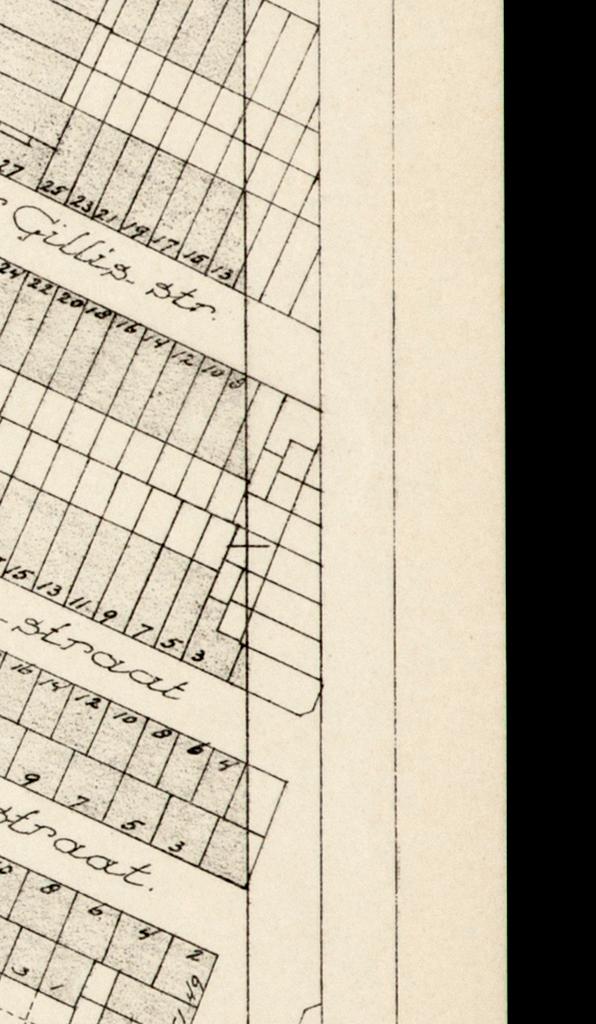 27 25 23 21 19 17 15 13
Gillis str.
24 22 20 18 16 14 12 10 8
15 13 11 9 7 5 3
-straat
16 14 12 10 8 6 4
9 7 5 3
straat.
8 6 4 2
3 1 49